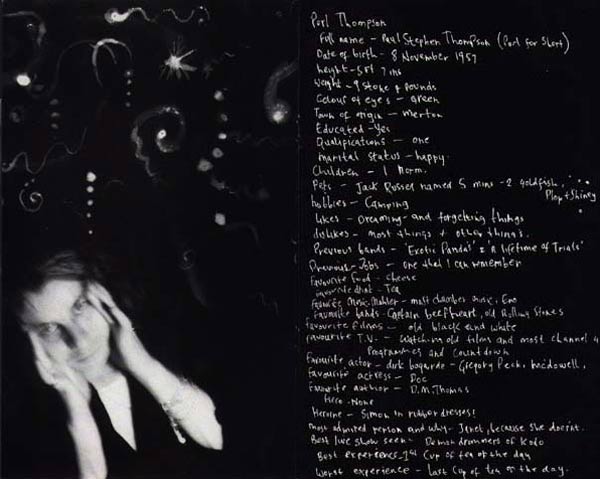 Porl Thompson
Full name - Paul Stephen Thompson (Porl for Short)
Date of birth - 8 November 1957
height - 5ft 7ins
Weight - 9 stone 4 pounds
Colour of eyes - green
Town of origin - merton
Educated - Yes
Qualifications - one
marital status - happy.
Children - 1 Norm.
Pets - Jack Russel named 5 mins - 2 goldfish
Plop + Shiney
hobbies - Camping
likes - Dreaming - and forgetting things
dislikes - most things + other things.
Previous bands - 'Exotic Pandas' 'A lifetime of Trials'
Previous - Jobs - one that I can remember
Favourite Food - Cheese
Favourite drink - Tea
Favourite Music. Mahler - most chamber music, Eno
Favourite bands - Captain beefheart, old Rolling Stones
favourite Films - old black and white
favourite T.V. - Watching old films and most channel 4
Programmes and Countdown
Favourite actor - dirk bogarde - Gregory Peck, mcdowell,
Favourite actress - Doc
Favourite author - D.M. Thomas
Hero - None
Heroine - Simon in rubber dresses!
most admired person and why - Janet, because she doesnt.
Best live show seen - Demon drummers of Kodo
Best experience - 1st Cup of tea of the day
Worst experience - last cup of tea of the day.